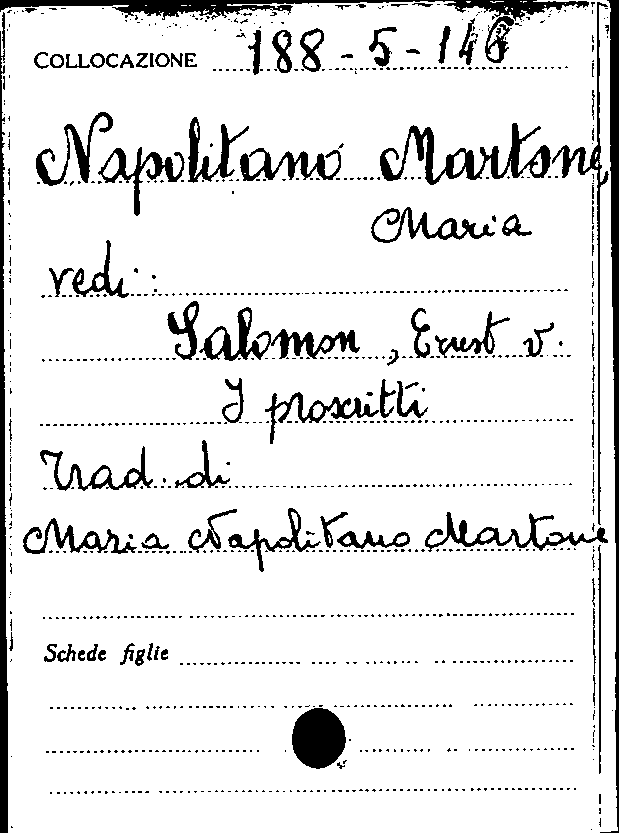 COLLOCAZIONE 188-5-146
Napolitano Martone,
Maria
vedi:
Salomon, Ernst v.
I proscritti
Trad. di
Maria Napolitano Martone
Schede figlie